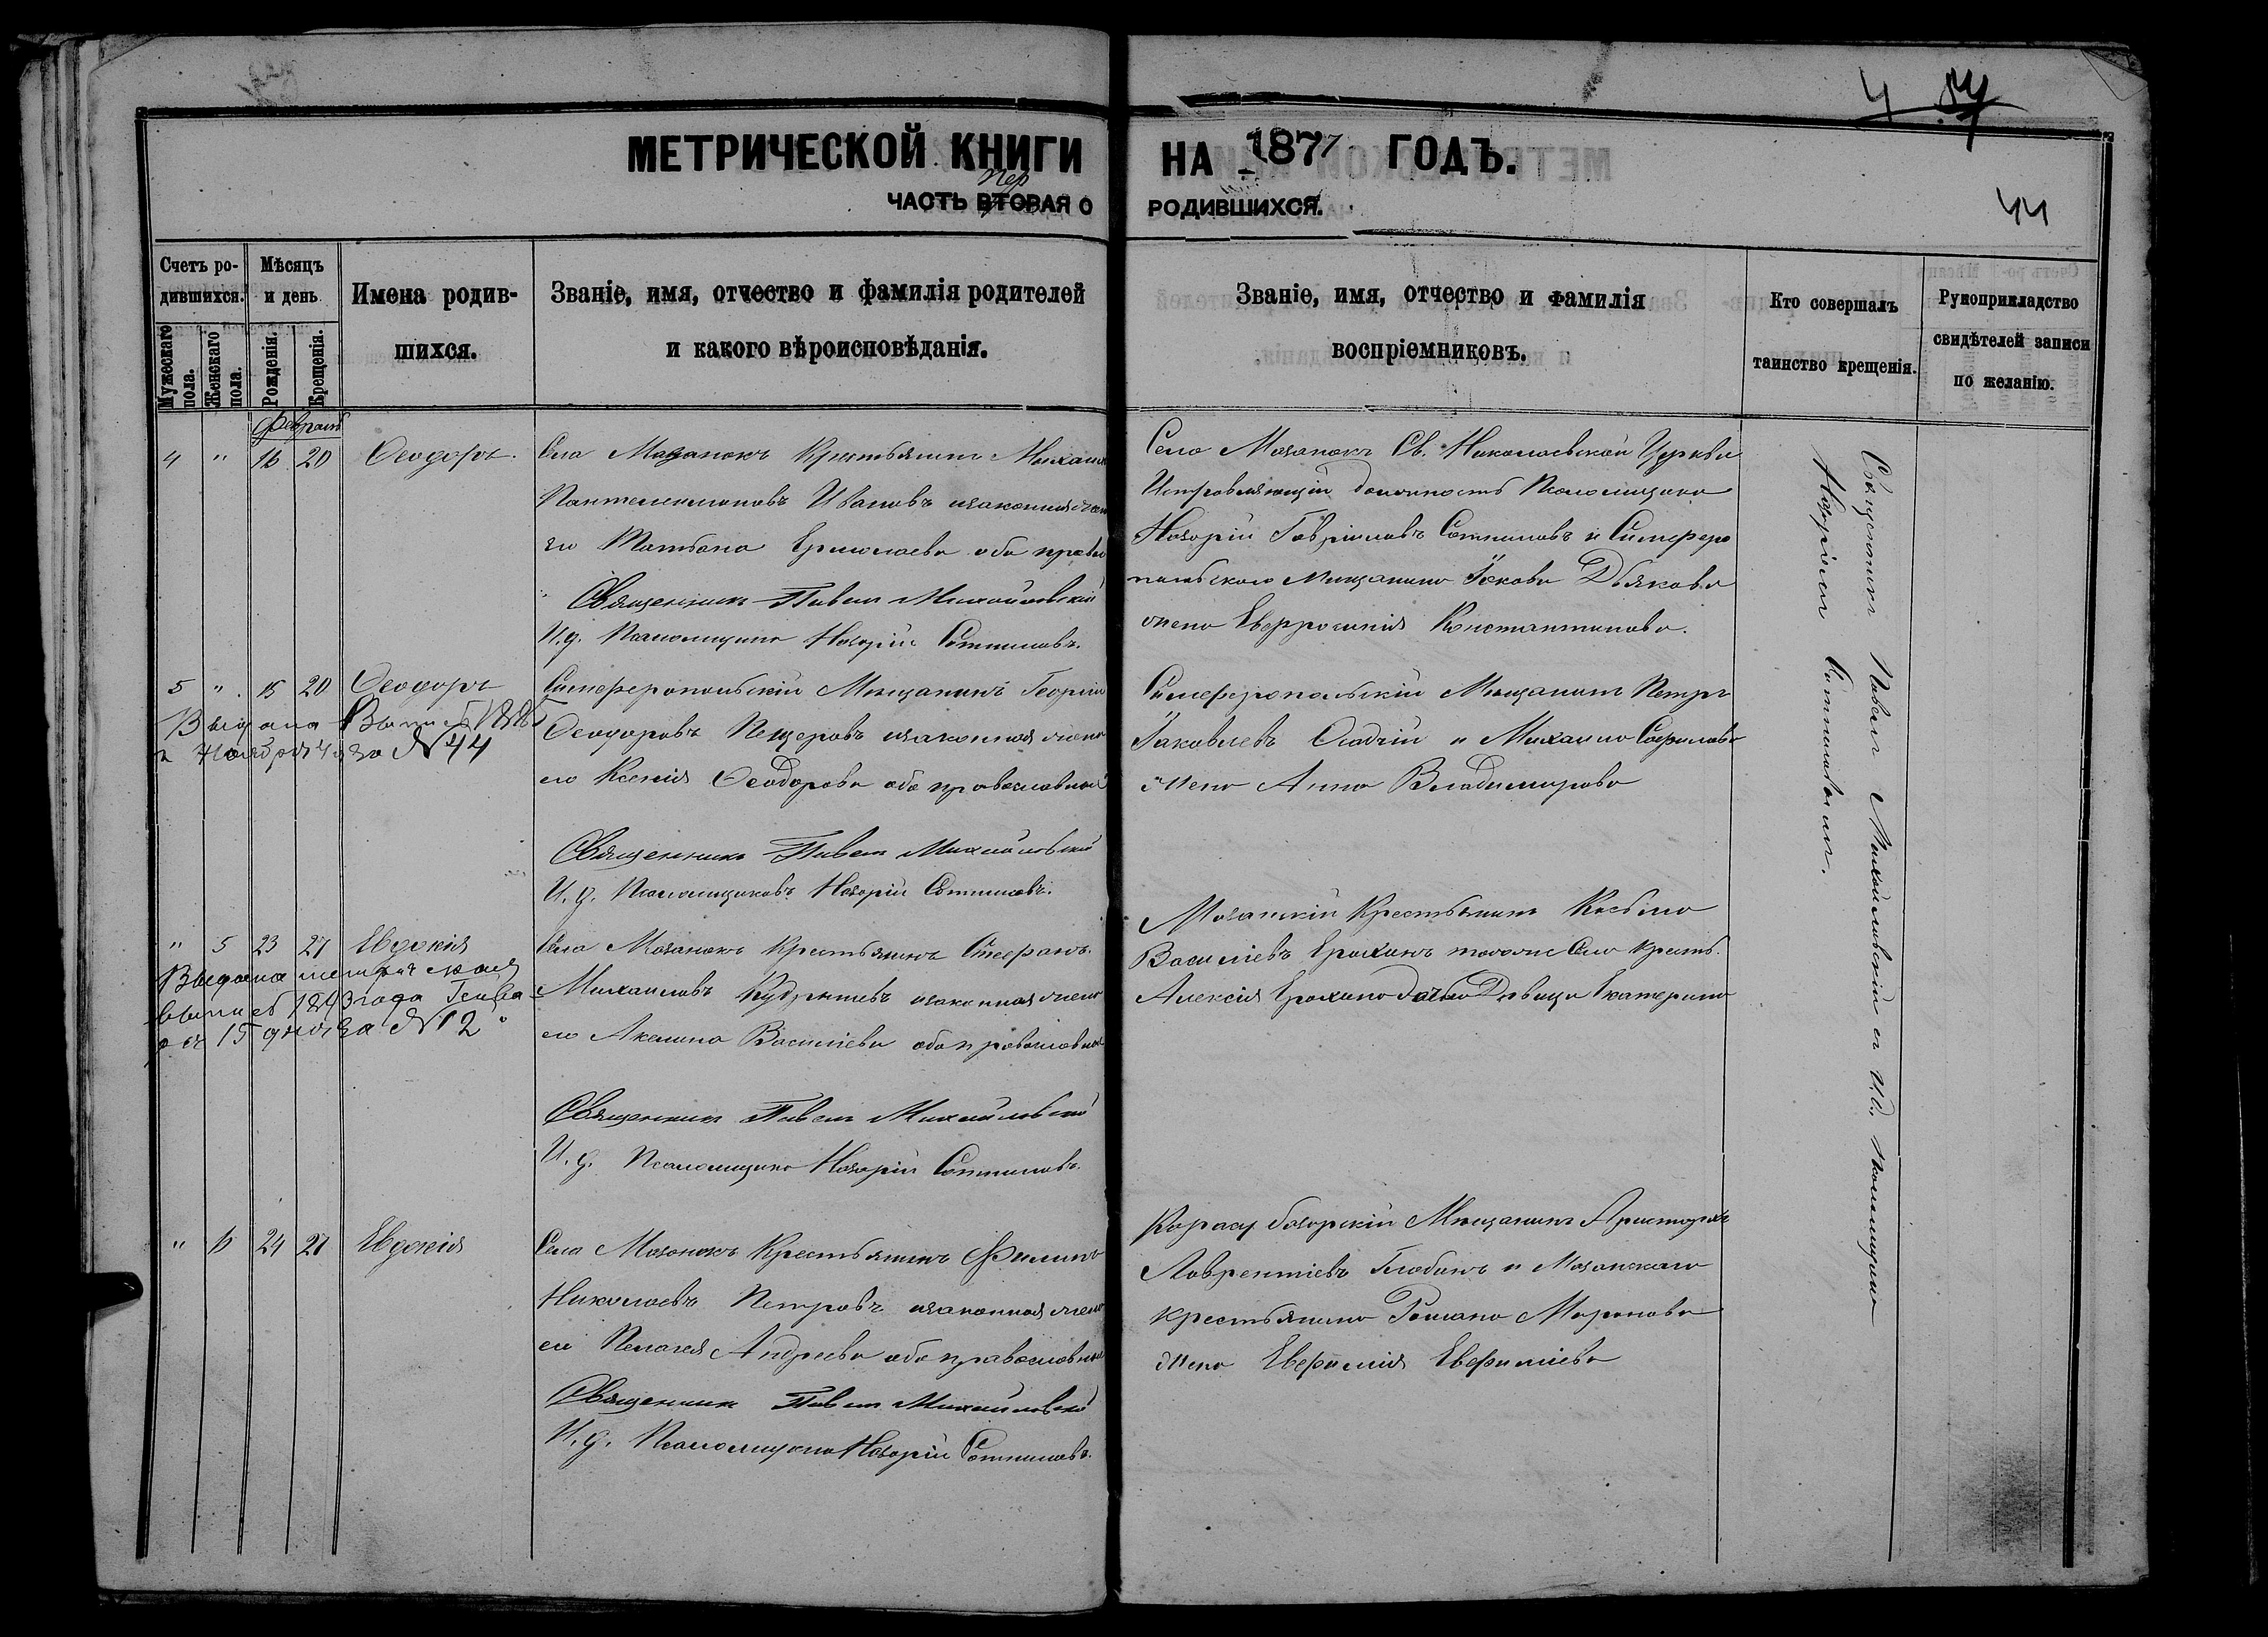 4 57
МЕТРИЧЕСКОЙ КНИГИ НА 1877 ГОДЪ.
пер
ЧАСТЬ ВТОРАЯ О РОДИВШИХСЯ.
44
Счетъ родившихся.
Мужескаго пола.
Женскаго пола.
Мѣсяцъ и день
Рожденія.
Крещенія.
Имена родившихся.
Званіе, имя, отчество и фамилія родителей
и какого вѣроисповѣданія.
Званіе, имя, отчество и фамилія
воспріемниковъ.
Кто совершалъ
таинство крещенія.
Рукоприкладство
свидѣтелей записи
по желанію.
Февраль
4 " 16 20 Ѳеодоръ.
Села Мазанокъ Крестьянинъ Михаилъ
Пантелеимоновъ Ивановъ изаконная жен
его Татьяна Ермолаева оба правосл
Священникъ Павелъ Михайловскій
И. д. Псаломщика Назарій Сотниковъ.
Село Мазанокъ Св. Николаевской Церкви
Исправляющій должность Псаломщика
Назарій Гавріиловъ Сотниковъ и Симферо
польскаго Мѣщанина Іакова Дьякова
жена Евфросинія Константинова.
5 " 15 20 Ѳеодоръ
Выдана
Ноября 4 д за № 44
Симферопольскій Мѣщанинъ Георгій
Ѳеодоровъ Пещеровъ изаконная жена
его Ксенія Ѳеодорова оба православные
Священникъ Павелъ Михайловскій
И. д. Псаломщиковъ Назарій Сотниковъ.
Симферопольскій Мѣщанинъ Петръ
Іаковлевъ Осадчій и Михаила
жена Анна Владимирова
" 5 23 27 Евдокія
Выдана метрическая
выпись 1893 года Генва
ря 15 дня за № 2
Села Мазанокъ Крестьянинъ Стефанъ
Михаиловъ изаконная жена
его Акилина Василіева оба православные
Священникъ Павелъ Михайловскій
И. д. Псаломщика Назарій Сотниковъ.
Мазанскій Крестьянинъ Косьма
Василіевъ Ерохинъ тогоже Села Крестъ.
Алексія Ерохина дочь Дѣвица Екатерина
" 6 24 27 Евдокія
Села Мазанокъ Крестьянинъ Филипъ
Николаевъ Петровъ изаконная жена
его Пелагея Андреева оба православные
Священникъ Павелъ Михайловскій
И. д. Псаломщика Назарій Сотниковъ.
Карасубазарскій Мѣщанинъ Аристархъ
Лаврентіевъ и Мазанскаго
крестьянина Романа Миронова
жена Евфимія Евфиміева
Священникъ Павелъ Михайловскій съ И.д. псаломщика
Назаріемъ Сотниковымъ.